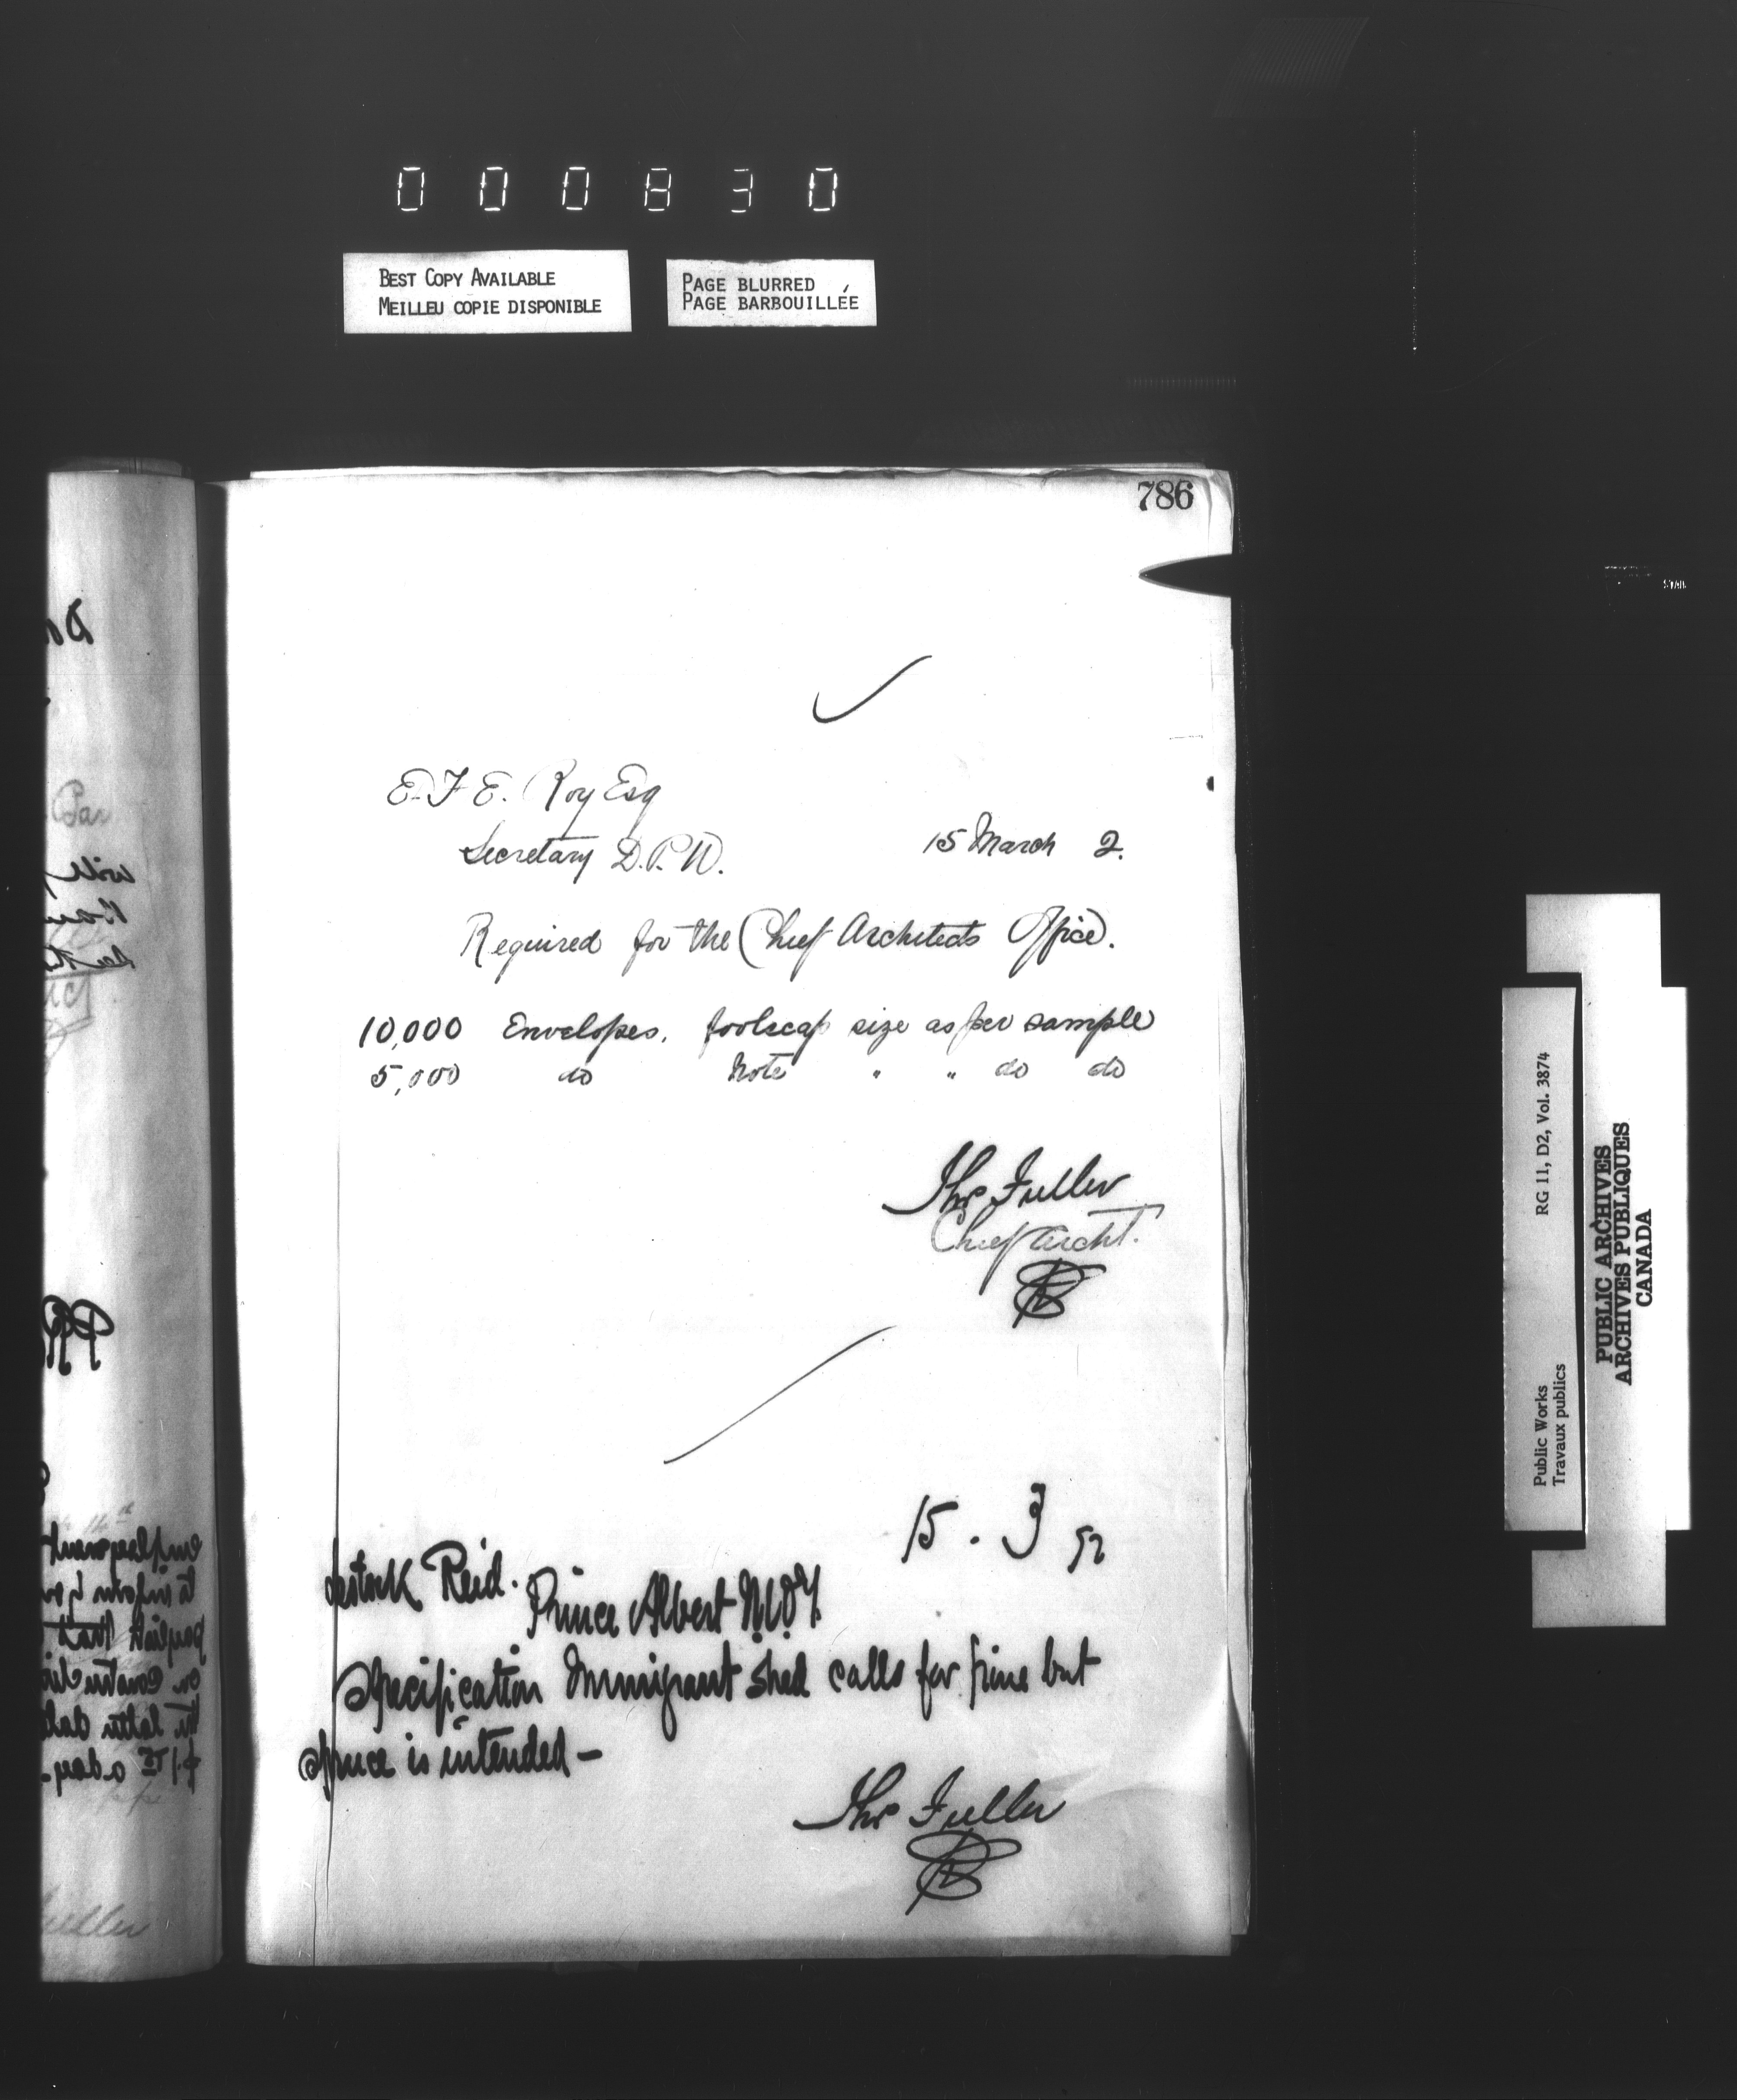 000830
BEST COPY AVAILABLE
MEILLEU COPIE DISPONIBLE
PAGE BLURRED
PAGE BARBOUILLÉE
786
E. F. E. Roy Esq
Secretary D.P.W.
15 March 2.
Required for the Chief Architects Office.
10,000 Envelopes, foolscap size as per sample
5,000 do Note " " do do
Thos Fuller
Chief Archt.
15 . 3 92
Lestock Reid.
Prince Albert N.W.T.
Specification Immigrant Shed calls for pine but
spruce is intended —
Thos Fuller
Public Works
Travaux publics
RG 11, D2, Vol. 3874
PUBLIC ARCHIVES
ARCHIVES PUBLIQUES
CANADA